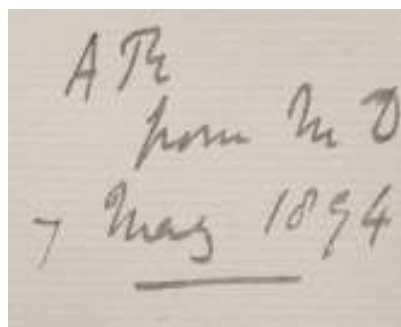 A R
from M D
7 May 1894